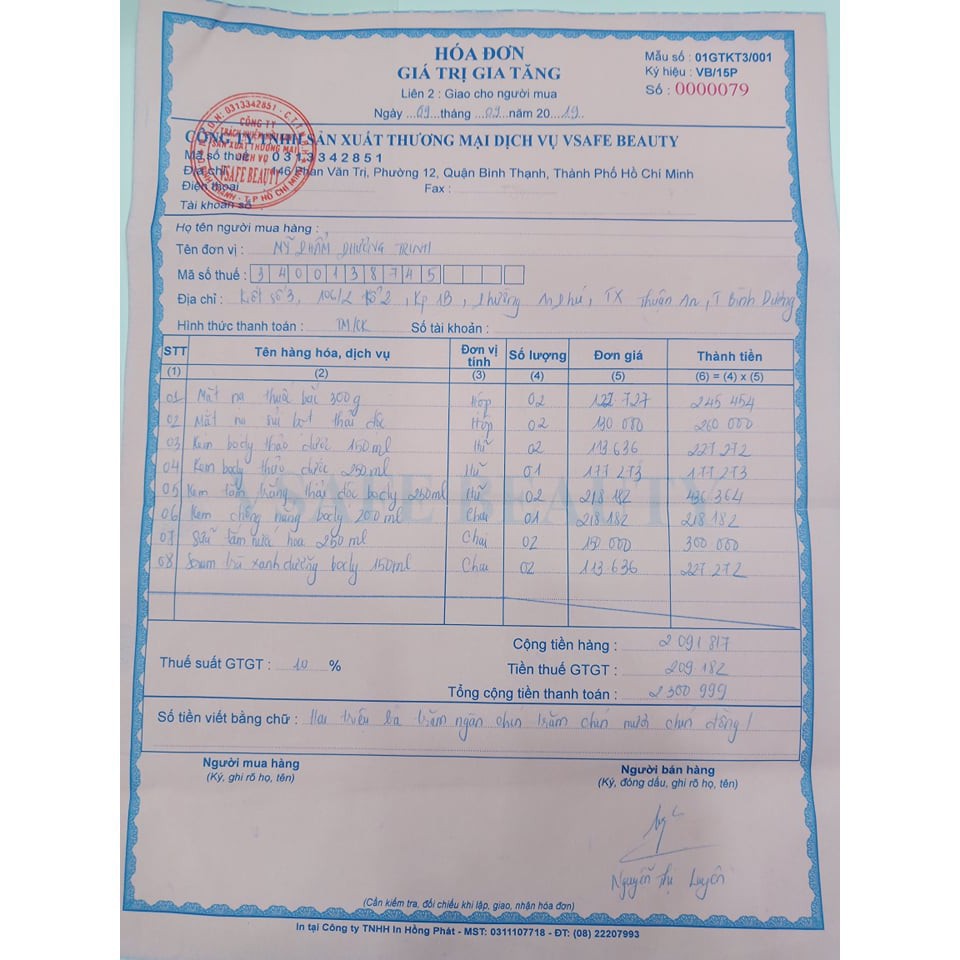 HÓA ĐƠN
GIÁ TRỊ GIA TĂNG
Liên 2 : Giao cho người mua
Ngày 09 tháng 09 năm 20 19
Mẫu số : 01GTKT3/001
Ký hiệu : VB/15P
Số : 0000079
CÔNG TY TNHH SẢN XUẤT THƯƠNG MẠI DỊCH VỤ VSAFE BEAUTY
Mã số thuế 0 3 1 3 3 4 2 8 5 1
Địa chỉ 446 Phan Văn Trị, Phường 12, Quận Bình Thạnh, Thành Phố Hồ Chí Minh
Điện thoại Fax :
Tài khoản số
CÔNG TY
SẢN XUẤT THƯƠNG MẠI
DỊCH VỤ
VSAFE BEAUTY
Họ tên người mua hàng :
Tên đơn vị : MỸ PHẨM PHƯƠNG TRINH
Mã số thuế : 3 4 0 0 1 3 8 7 4 5
Địa chỉ : Kiốt số 3, 106/2 tổ 2, Kp 1B, Phường An Phú, TX Thuận An, T Bình Dương
Hình thức thanh toán : TM/CK Số tài khoản :
STT Tên hàng hóa, dịch vụ Đơn vị tính Số lượng Đơn giá Thành tiền
(1) (2) (3) (4) (5) (6) = (4) x (5)
01 Mặt nạ thuốc bắc 300g Hộp 02 122 727 245 454
02 Mặt nạ sủi bọt thải độc Hộp 02 130 000 260 000
03 Kem body thảo dược 150ml Hũ 02 113 636 227 272
04 Kem body thảo dược 250ml Hũ 01 177 273 177 273
05 Kem tắm trắng thải độc body 250ml Hũ 02 218 182 436 364
06 Kem chống nắng body 200ml Chai 01 218 182 218 182
07 Sữa tắm nước hoa 250ml Chai 02 150 000 300 000
08 Serum trà xanh dưỡng body 150ml Chai 02 113 636 227 272
VSAFE BEAUTY
Cộng tiền hàng : 2 091 817
Thuế suất GTGT : 10 % Tiền thuế GTGT : 209 182
Tổng cộng tiền thanh toán : 2 300 999
Số tiền viết bằng chữ : Hai triệu ba trăm ngàn chín trăm chín mươi chín đồng /
Người mua hàng
(Ký, ghi rõ họ, tên)
Người bán hàng
(Ký, đóng dấu, ghi rõ họ, tên)
Nguyễn Thị Luyến
(Cần kiểm tra, đối chiếu khi lập, giao, nhận hóa đơn)
In tại Công ty TNHH In Hồng Phát - MST: 0311107718 - ĐT: (08) 22207993